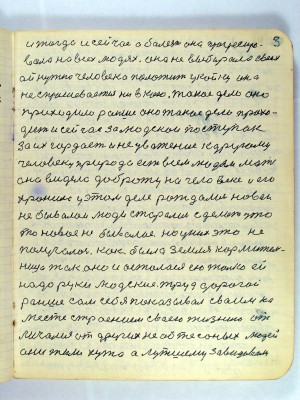 3
и тогда и сейчас а болезн она прогресиро-
вала на всех людях. она не выбирала своих
ей нужно человека положит у койку она
не спрашевает ни в кого, такое дело оно
приходило ранше оно такое дело прихо-
дит и сейчас за людской поступак
за их гардаст и не уважение к другому
человеку природа ест всем людям мат
она видела доброту на человеке и его
хранило у этом деле рождали новое
не бывалое люди старалис сделат што
то новое не бывалое. но у них это не
получалос. как была земля кормител-
ница так оно и осталася ею толко ей
надо руки людские труд дорогой
ранше сам себя показывал своим на
месте строением своею жизнию от-
личался от других не обтесоных людей
они жили хужа а лутшему завидовали